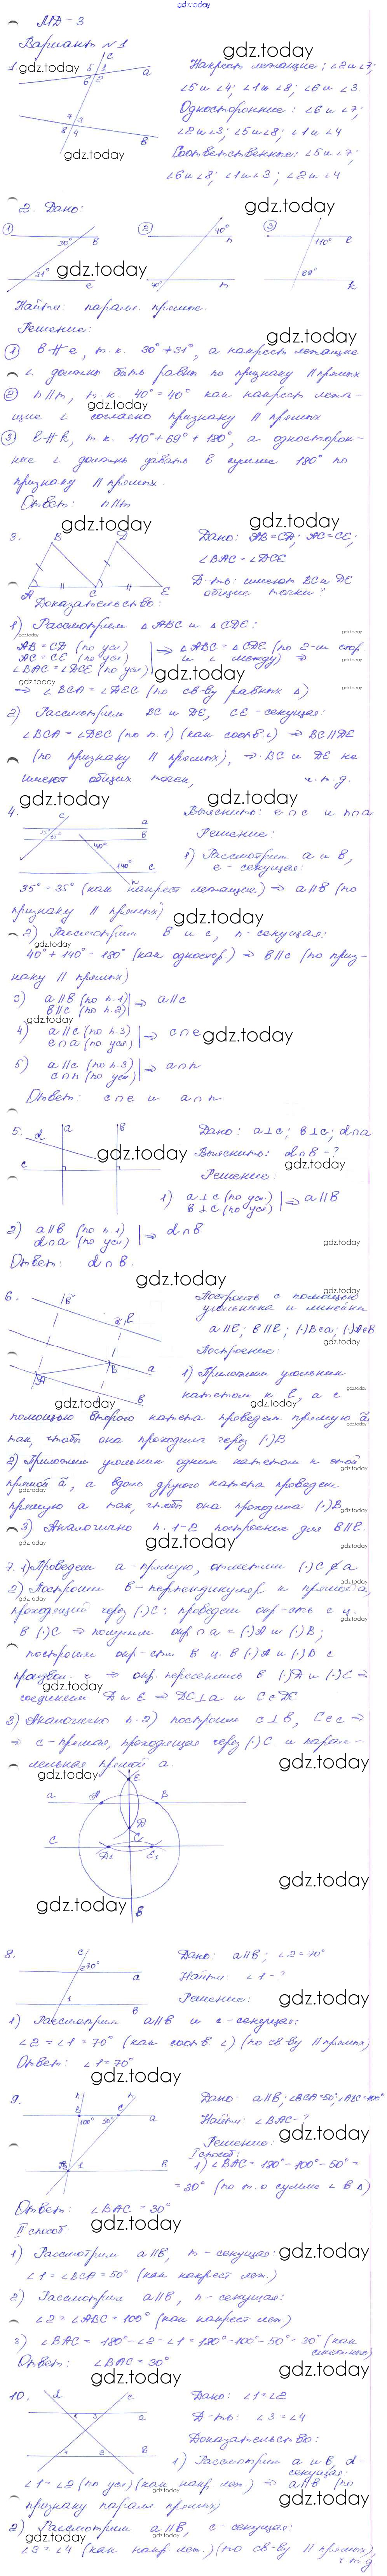 gdz.today
МД – 3
Вариант №1
1. Накрест лежащие: ∠2 и ∠7;
∠5 и ∠4; ∠1 и ∠8; ∠6 и ∠3.
Односторонние: ∠6 и ∠7;
∠2 и ∠3; ∠5 и ∠8; ∠1 и ∠4
Соответственные: ∠5 и ∠7;
∠6 и ∠8; ∠1 и ∠3; ∠2 и ∠4
2. Дано:
Найти: паралл. прямые.
Решение:
① b ∦ e, т.к. 30° ≠ 31°, а накрест лежащие
∠ должны быть равны по признаку || прямых
② n || m, т.к. 40° = 40° как накрест лежа-
щие ∠ согласно признаку || прямых
③ l ∦ k, т.к. 110° + 69° ≠ 180°, а односторон-
ние ∠ должны давать в сумме 180° по
признаку || прямых.
Ответ: n || m
3. Дано: AB = CD; AC = CE;
∠BAC = ∠DCE
Д-ть: имеют BC и DE
общие точки?
Доказательство:
1) Рассмотрим △ABC и △CDE:
AB = CD (по усл)
AC = CE (по усл)
∠BAC = ∠DCE (по усл)
⇒ △ABC = △CDE (по 2-м стор
и ∠ между) ⇒
⇒ ∠BCA = ∠DEC (по св-ву равных △)
2) Рассмотрим BC и DE, CE – секущая:
∠BCA = ∠DEC (по п.1) (как соотв. ∠) ⇒ BC || DE
(по признаку || прямых), ⇒ BC и DE не
имеют общих точек, ч.т.д.
4. Выяснить: e ∩ c и n ∩ a
Решение:
1) Рассмотрим a и b,
e – секущая:
35° = 35° (как накрест лежащие) ⇒ a || b (по
признаку || прямых)
2) Рассмотрим b и c, n – секущая:
40° + 140° = 180° (как одностор.) ⇒ b || c (по приз-
наку || прямых)
3) a || b (по п.1)
b || c (по п.2)
⇒ a || c
4) a || c (по п.3)
e ∩ a (по усл)
⇒ c ∩ e
5) a || c (по п.3)
c ∩ n (по усл)
⇒ a ∩ n
Ответ: c ∩ e и a ∩ n
5. Дано: a ⊥ c; b ⊥ c; d ∩ a
Выяснить: d ∩ b – ?
Решение:
1) a ⊥ c (по усл.)
b ⊥ c (по усл)
⇒ a || b
2) a || b (по п.1)
d ∩ a (по усл)
⇒ d ∩ b
Ответ: d ∩ b.
6. Построить с помощью
угольника и линейки
a || l; b || l; (·)B∈a; (·)A∈b
Построение:
1) Приложим угольник
катетом к l, а с
помощью второго катета проведем прямую ã
так, чтобы она проходила через (·)B
2) Приложим угольник одним катетом к этой
прямой ã, а вдоль другого катета проведем
прямую a так, чтобы она проходила (·)B.
3) Аналогично п. 1-2 построение для b || l.
7. 1) Проведем a – прямую, отметим (·)C ∉ a
2) Построим b – перпендикуляр к прямой a,
проходящей через (·)C: проведем окр-сть с ц.
в (·)C ⇒ получим окр ∩ a = (·)A и (·)B;
построим окр-сти в ц. в (·)A и (·)B с
⇒ окр. пересеклись в (·)D и (·)E ⇒
соединим D и E ⇒ DE ⊥ a и C∈DE
3) Аналогично п.2) построим c ⊥ b, C∈c ⇒
⇒ c – прямая, проходящая через (·)C и парал-
лельная прямой a.
8. Дано: a || b; ∠2 = 70°
Найти: ∠1 – ?
Решение:
1) Рассмотрим a || b и c – секущая:
∠2 = ∠1 = 70° (как соотв. ∠) (по св-ву || прямых)
Ответ: ∠1 = 70°
9. Дано: a || b; ∠BCA = 50°; ∠ABC = 100°
Найти: ∠BAC – ?
Решение:
I способ:
1) ∠BAC = 180° – 100° – 50° =
= 30° (по т. о сумме ∠ в △)
Ответ: ∠BAC = 30°
II способ
1) Рассмотрим a || b, m – секущая:
∠1 = ∠BCA = 50° (как накрест леж.)
2) Рассмотрим a || b, n – секущая:
∠2 = ∠ABC = 100° (как накрест леж.)
3) ∠BAC = 180° – ∠2 – ∠1 = 180° – 100° – 50° = 30° (как
смежные)
Ответ: ∠BAC = 30°
10. Дано: ∠1 = ∠2
Д-ть: ∠3 = ∠4
Доказательство:
1) Рассмотрим a и b, d –
секущая:
∠1 = ∠2 (по усл) (как накр. леж.) ⇒ a || b (по
признаку паралл прямых)
2) Рассмотрим a || b, c – секущая:
∠3 = ∠4 (как накр леж.) (по св-ву || прямых),
ч.т.д.